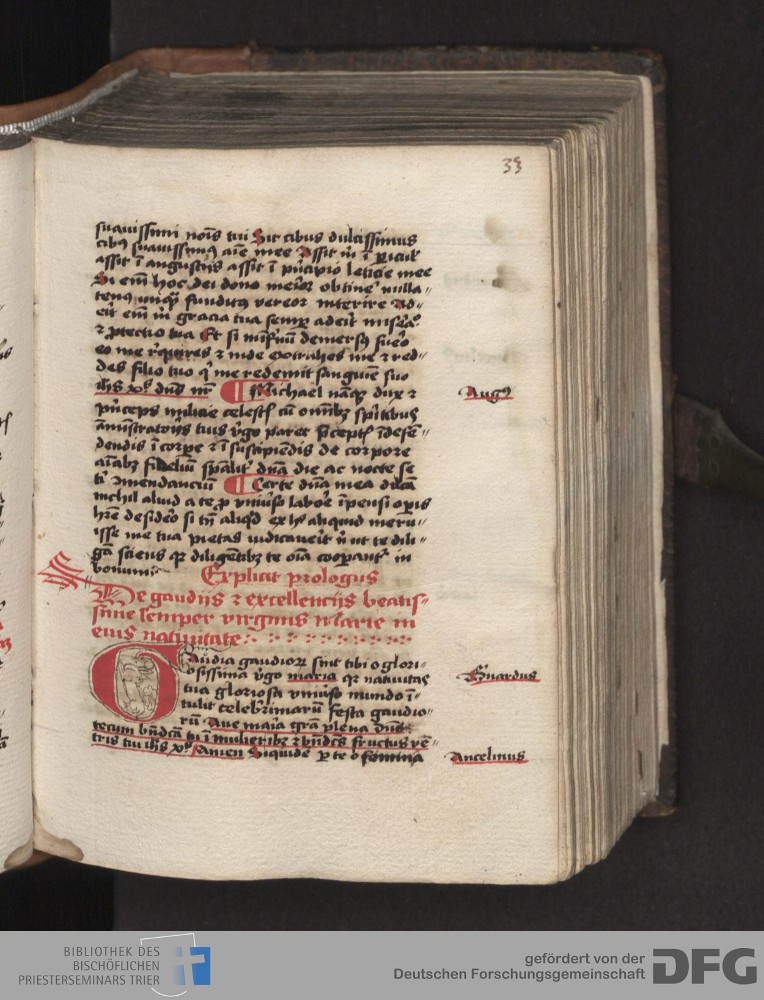 33
suauissimi nois tui Sit cibus dulcissimus
cibꝯ suauissimꝯ aie mee Assit m̄ i
assit ī angustijs assit ī pncipio leticie mee
Si em̄ hoc dei dono obtinē nulla-
tenꝯ fūditꝯ vereor interire Ad-
erit em̄ m̄ gracia tua semꝑ aderit
⁊ ꝓtectio tua Et si demersꝯ fuero
eo me reqꝛires ⁊ inde extrahes me ⁊ red-
des filio tuo qͥ me redemit sanguine suo
ihs xp̄s dn̄s nr̄ Michael nāqꝫ dux ⁊
pn̄ceps milicie celestꝭ cū om̄ibꝫ spiritibꝯ
amīstratorijs tuis vgo paret p̄ceptꝭ īdefē-
dendis ī corpore ⁊ ī suscipiēdis de corpore
aīabꝫ fideliū spālit dn̄a die ac nocte se
ti 9mendanciū Certe dn̄a mea
nichil aliud a te ꝓ vniūso labore īpensi opis
hr̄e desidero si tn̄ aliqd ex hꝭ aliquid meru-
isse me tua pietas iudicauerit n̄ ut te dili-
gā sciens qꝛ diligētibꝫ te oīa cooꝑant in
bonum
Explicit prologus
De gaudijs ⁊ excellencijs beatis-
sime semper virginis Marie in
eius natiuitate
Gaudia gaudioꝝ sint tibi o glori-
osissima vgo maria qꝛ natiuitas
tua gloriosa vniūso mundo ī-
tulit celeberimarū festa gaudio-
rū Aue maria grā plena dn̄s
tecum bn̄dcā tu ī mulieribꝫ ⁊ bn̄dcs fructus vē-
tris tui ihs xp̄s Amen Siquidē ꝑ te o femina
Augꝯ
Bn̄ardus
Ancelmus
BIBLIOTHEK DES
BISCHÖFLICHEN
PRIESTERSEMINARS TRIER
gefördert von der
Deutschen Forschungsgemeinschaft
DFG